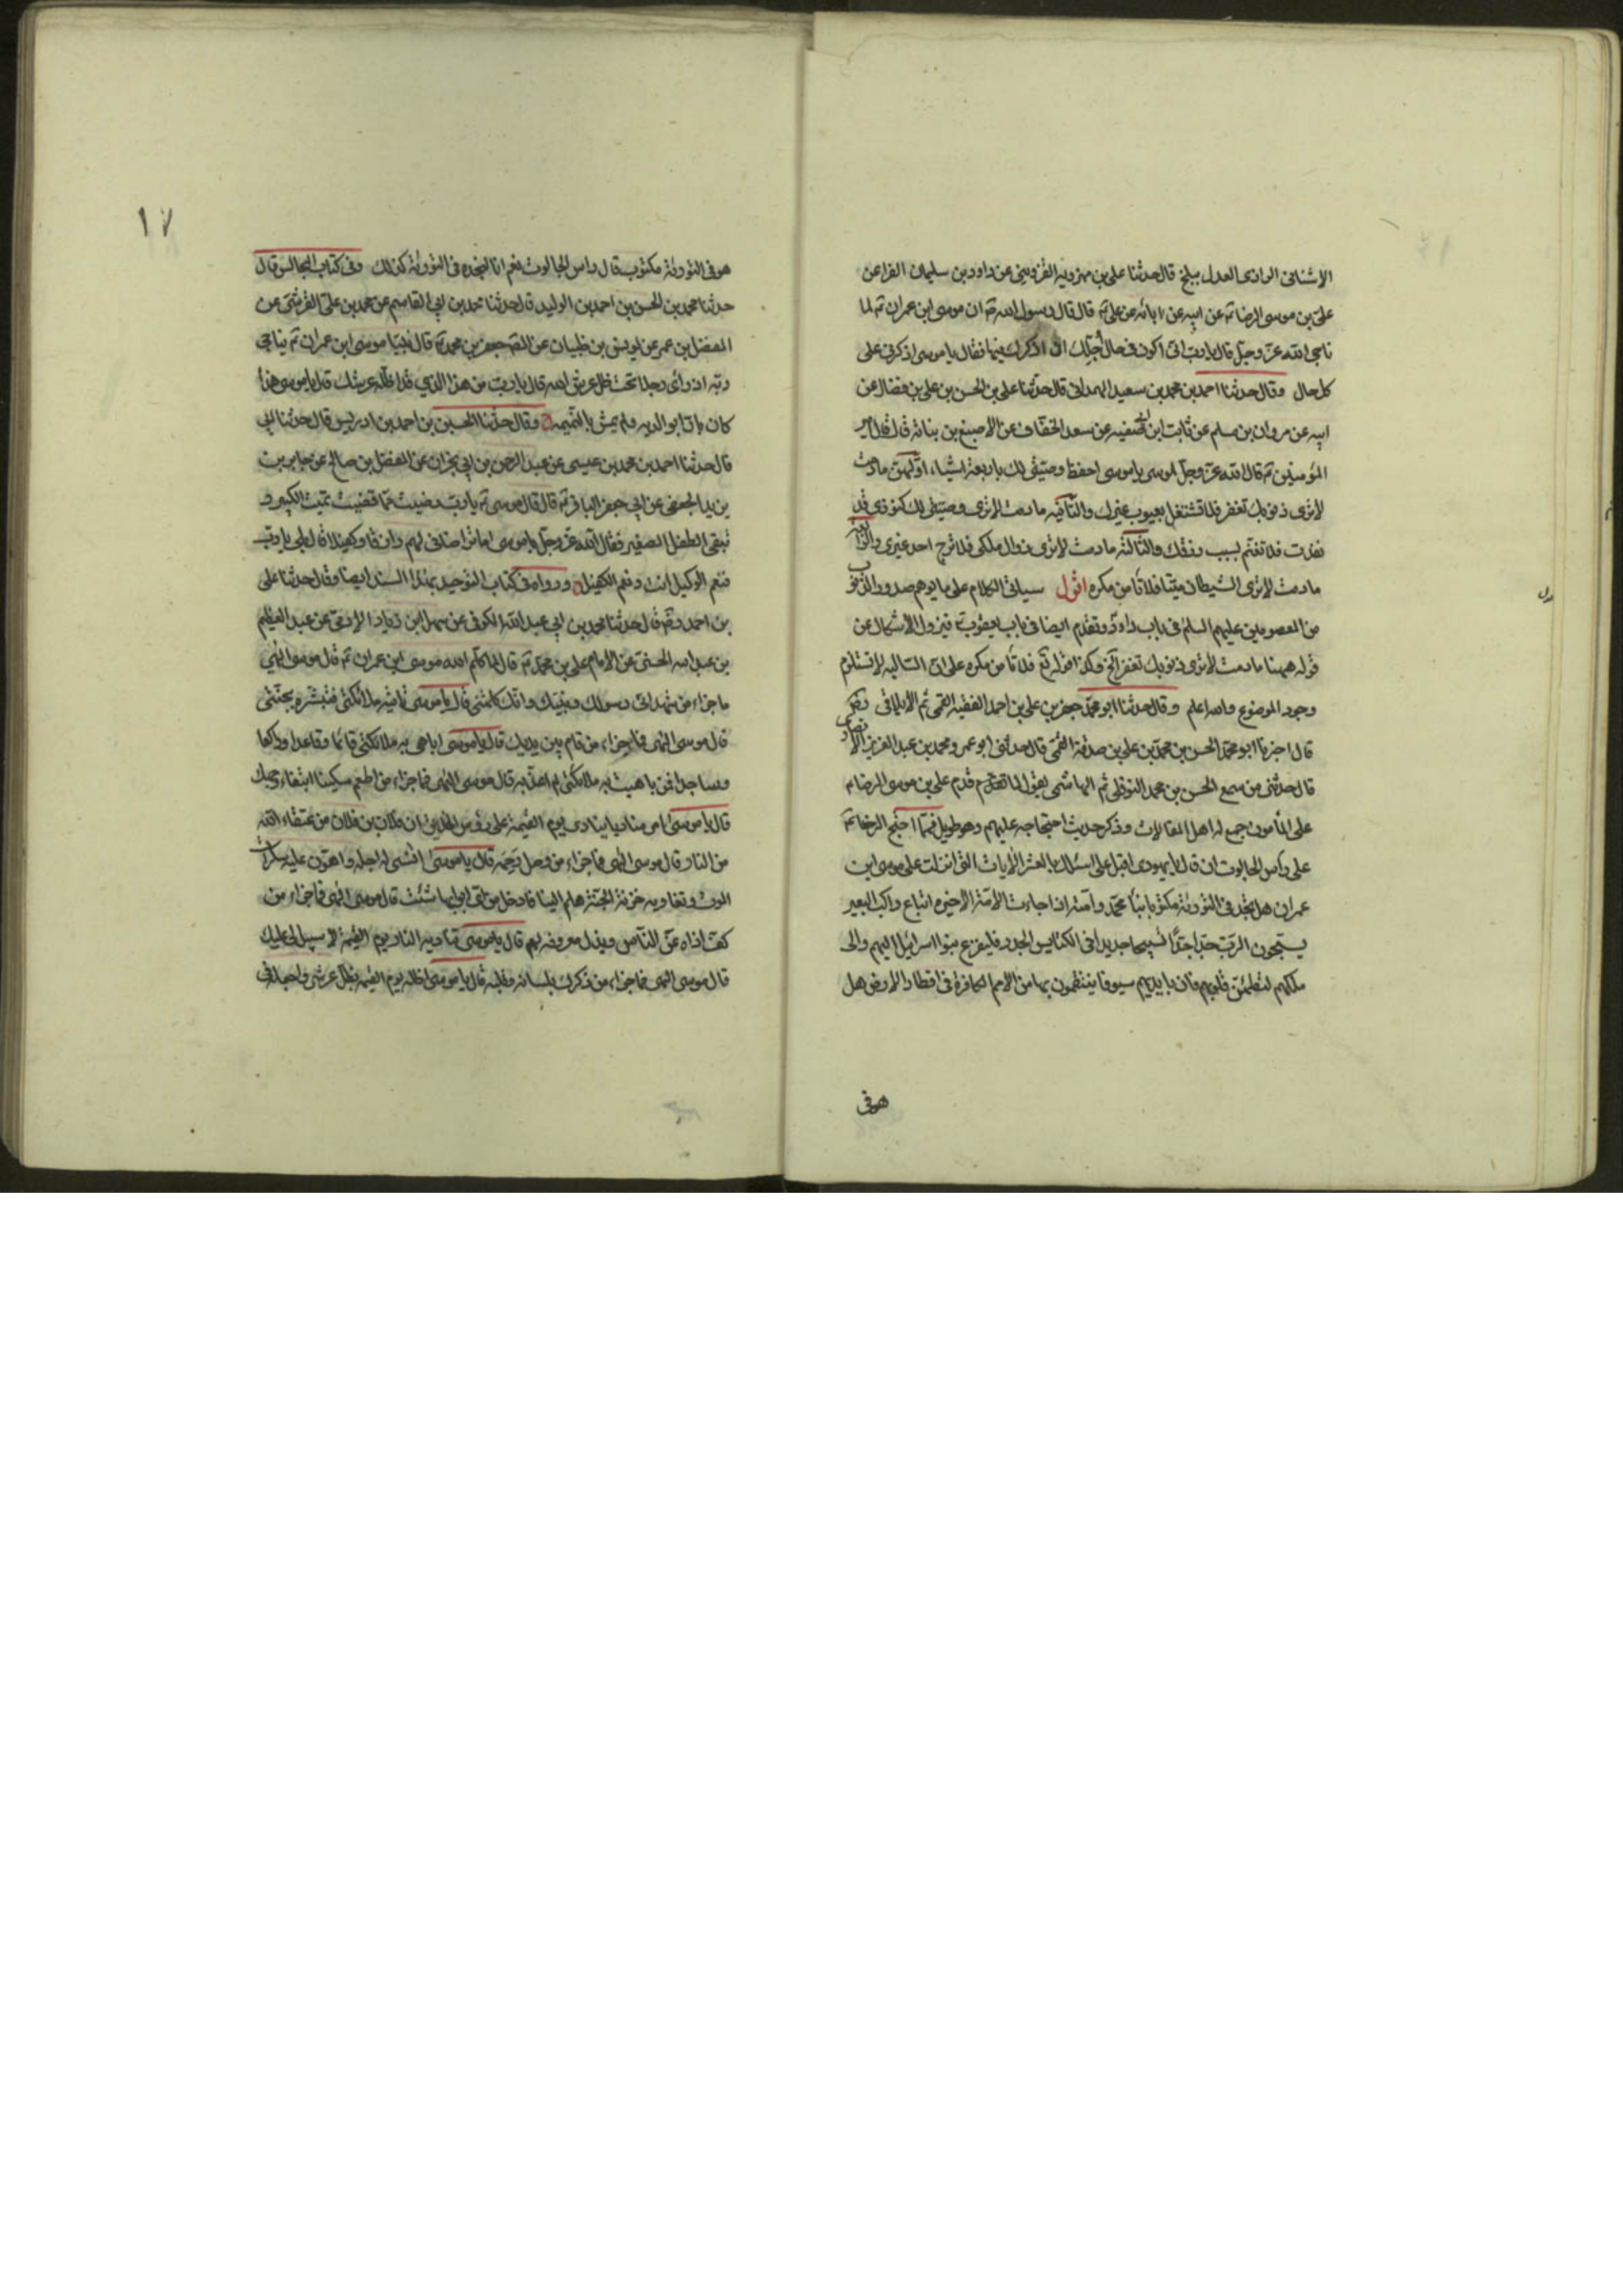 الاشنانى الرازى العدل ببلخ قال حدثنا على بن مهرويه القزوينى عن داود بن سليمان الفراء عن
على بن موسى الرضا ع عن ابيه عن ابائه عن على ع قال قال رسول الله ص ان موسى ابن عمران ع لما
ناجى الله عز وجل قال يا رب انى اكون فى حال اجلك ان اذكرك فيها فقال يا موسى اذكرنى على
كل حال وقال حدثنا احمد بن محمد بن سعيد الهمدانى قال حدثنا على بن الحسن بن على بن فضال عن
ابيه عن مروان بن مسلم عن ثابت ابن ابى صفيه عن سعد الخفاف عن الاصبغ بن نباته قال قال امير
المؤمنين ع قال الله عز وجل لموسى يا موسى احفظ وصيتى لك باربعة اشياء اولهن ما دمت
لا ترى ذنوبك تغفر فلا تشتغل بعيوب غيرك والثانيه ما دمت لا ترى كنوزى قد
نفدت فلا تغتم بسبب رزقك والثالثة ما دمت لا ترى زوال ملكى فلا ترج احد غيرى والرابعة
ما دمت لا ترى الشيطان ميتا فلا تأمن مكره اقول سياتى الكلام على ما يوهم صدور الذنوب
من المعصومين عليهم السلم فى باب داود وتقدم ايضا فى باب يعقوب فيزول الاشكال عن
قوله ههنا ما دمت لا ترى ذنوبك تغفر الخ وكذا قوله ع فلا تأمن مكره على ان السالبه لا تستلزم
وجود الموضوع والله اعلم وقال حدثنا ابو محمد جعفر بن على بن احمد الفقيه القمى ثم الايلاقى رضى
قال اخبرنا ابو محمد الحسن بن محمد بن على بن صدقة القمى قال حدثنى ابو عمرو محمد بن عبد العزيز الانصارى
قال حدثنى من سمع الحسن بن محمد النوفلى ثم الهاشمى يقول لما قدم على بن موسى الرضا ع
على المأمون جمع له اهل المقالات وذكر حديث احتجاجه عليهم وهو طويل فيما احتج الرضا ع
على رأس الجالوت ان قال يا يهودى اقبل على اسئلك بالعشر الآيات التى انزلت على موسى ابن
عمران هل تجد فى التورية مكتوبا بنبأ محمد وامته اذا جاءت الامة الاخيره اتباع راكب البعير
يسبحون الرب جدا جدا تسبيحا جديدا فى الكنايس الجدد فليفزع بنوا اسرائيل اليهم والى
ملكهم لتطمئن قلوبهم فان بايديهم سيوفا ينتقمون بها من الامم الكافرة فى اقطار الارض هل
هو فى
١٧
هو فى التورية مكتوب قال راس الجالوت نعم انا لنجده فى التورية كذلك وفى كتاب المجالس قال
حدثنا محمد بن الحسن بن احمد بن الوليد قال حدثنا محمد بن ابى القاسم عن محمد بن على القرشى عن
المفضل بن عمر عن يونس بن ظبيان عن الصادق جعفر بن محمد ع قال بينا موسى ابن عمران ع يناجى
ربه اذ رأى رجلا تحت ظل عرش الله قال يا رب من هذا الذى قد اظله عرشك قال يا موسى هذا
كان بارا بوالديه ولم يمش بالنميمه وقال حدثنا الحسين بن احمد بن ادريس قال حدثنا ابى
قال حدثنا احمد بن محمد بن عيسى عن عبد الرحمن بن ابى نجران عن المفضل بن صالح عن جابر بن
يزيد الجعفى عن ابى جعفر الباقر ع قال قال موسى ع يا رب رضيت بما قضيت تميت الكبير و
تبقى الطفل الصغير فقال الله عز وجل يا موسى اما ترضانى لهم رازقا وكفيلا قال بلى يا رب
فنعم الوكيل انت ونعم الكفيل ورواه فى كتاب التوحيد بهذا السند ايضا وقال حدثنا على
بن احمد رض قال حدثنا محمد بن ابى عبد الله الكوفى عن سهل ابن زياد الادمى عن عبد العظيم
بن عبد الله الحسنى عن الامام على بن محمد ع قال لما كلم الله موسى ابن عمران ع قال موسى الهى
ما جزاء من شهد انى رسولك ونبيك وانك كلمتنى قال يا موسى تأتيه ملائكتى فتبشره بجنتى
قال موسى الهى فما جزاء من قام بين يديك قال يا موسى اباهى به ملائكتى قائما وقاعدا وراكعا
وساجدا ومن باهيت به ملائكتى لم اعذبه قال موسى الهى فما جزاء من اطعم مسكينا ابتغاء وجهك
قال يا موسى امر مناديا ينادى يوم القيمة على رؤس الخلايق ان فلان بن فلان من عتقاء الله
من النار قال موسى الهى فما جزاء من وصل رحمه قال يا موسى انسئ له اجله واهون عليه سكرات
الموت وتناديه خزنة الجنة هلم الينا فادخل من اى ابوابها شئت قال موسى الهى فما جزاء من
كف اذاه عن الناس وبذل معروفه لهم قال يا موسى تناديه النار يوم القيمة لا سبيل لى عليك
قال موسى الهى فما جزاء من ذكرك بلسانه وقلبه قال يا موسى اظله يوم القيمة بظل عرشى واجعله فى